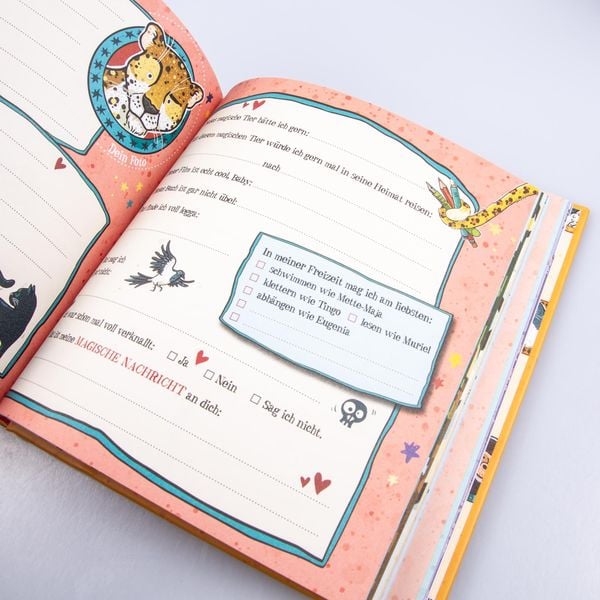 Dein Foto
magische Tier hätte ich gern:
diesem magischen Tier würde ich gern mal in seine Heimat reisen:
nach
Film ist echt cool, Baby:
Buch ist gar nicht übel:
finde ich voll legga:
mag ich
In meiner Freizeit mag ich am liebsten:
schwimmen wie Mette-Maja
klettern wie Tingo
lesen wie Muriel
abhängen wie Eugenia
schon mal voll verknallt:
Ja
Nein
Sag ich nicht.
ist meine MAGISCHE NACHRICHT an dich: